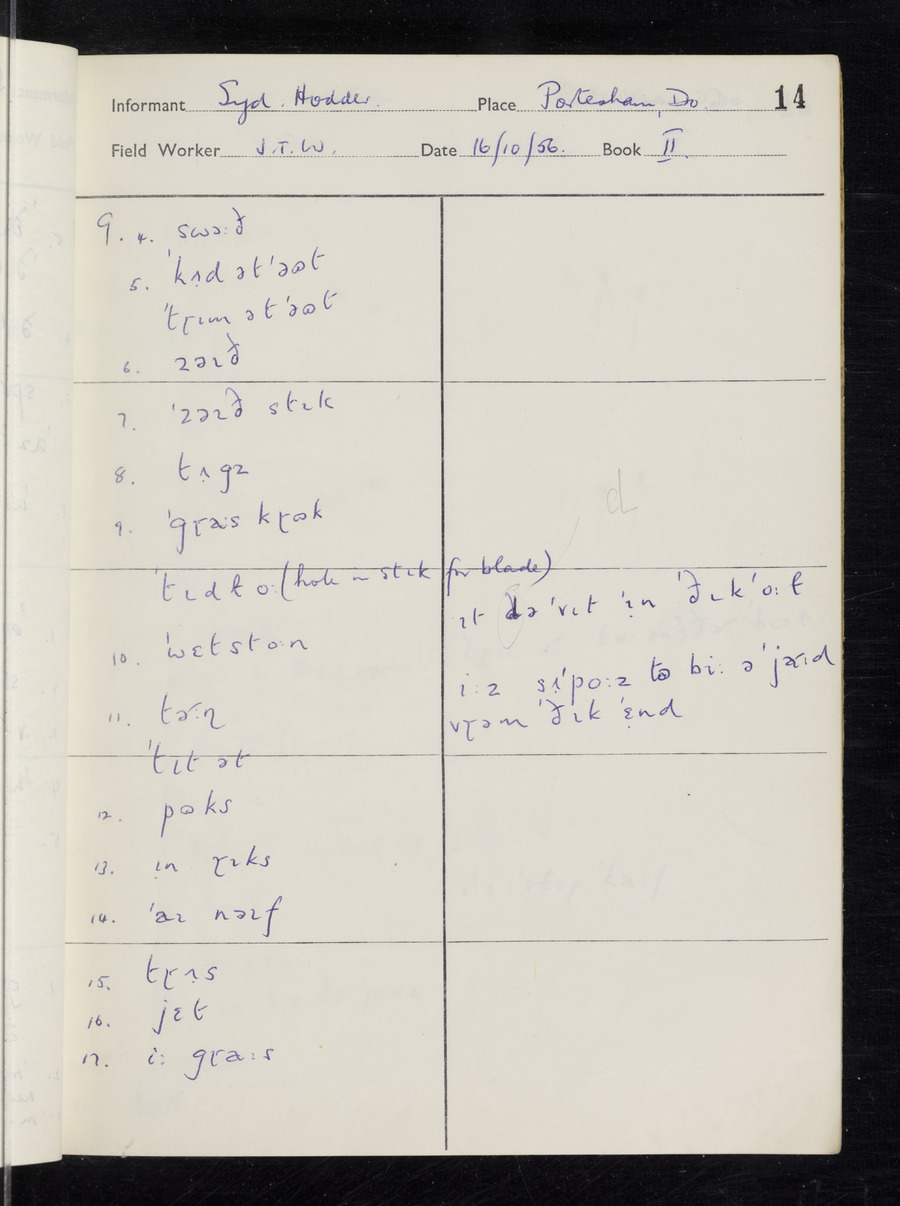 Informant Syd. Hodder. Place Portesham, Do. 14
Field Worker J.T.W. Date 16/10/56. Book II.
9. 4. swəːð
5. 'kɪd ət 'əʊt
'tɽɪm ət 'əʊt
6. zəɪð
7. 'zəɪð stɪk
8. tʌgz
9. 'gɽaːs kɽʊk
'tɪdɫ oː (hole in stick for blade)
10. 'wɛtstoːn
11. təːn
'tɪt ət
12. pʊks
13. ɪn ɽɪks
14. 'aɪ nəɪf
15. tɽʌs
16. jɛt
17. iː gɽaːs
d
ɪt də 'vɪt 'ɪn 'ðɪk 'oːɫ
iːz sʌ'poːz tʊ biː ə 'jaːɪd
vɽəm 'ðɪk 'ɛnd